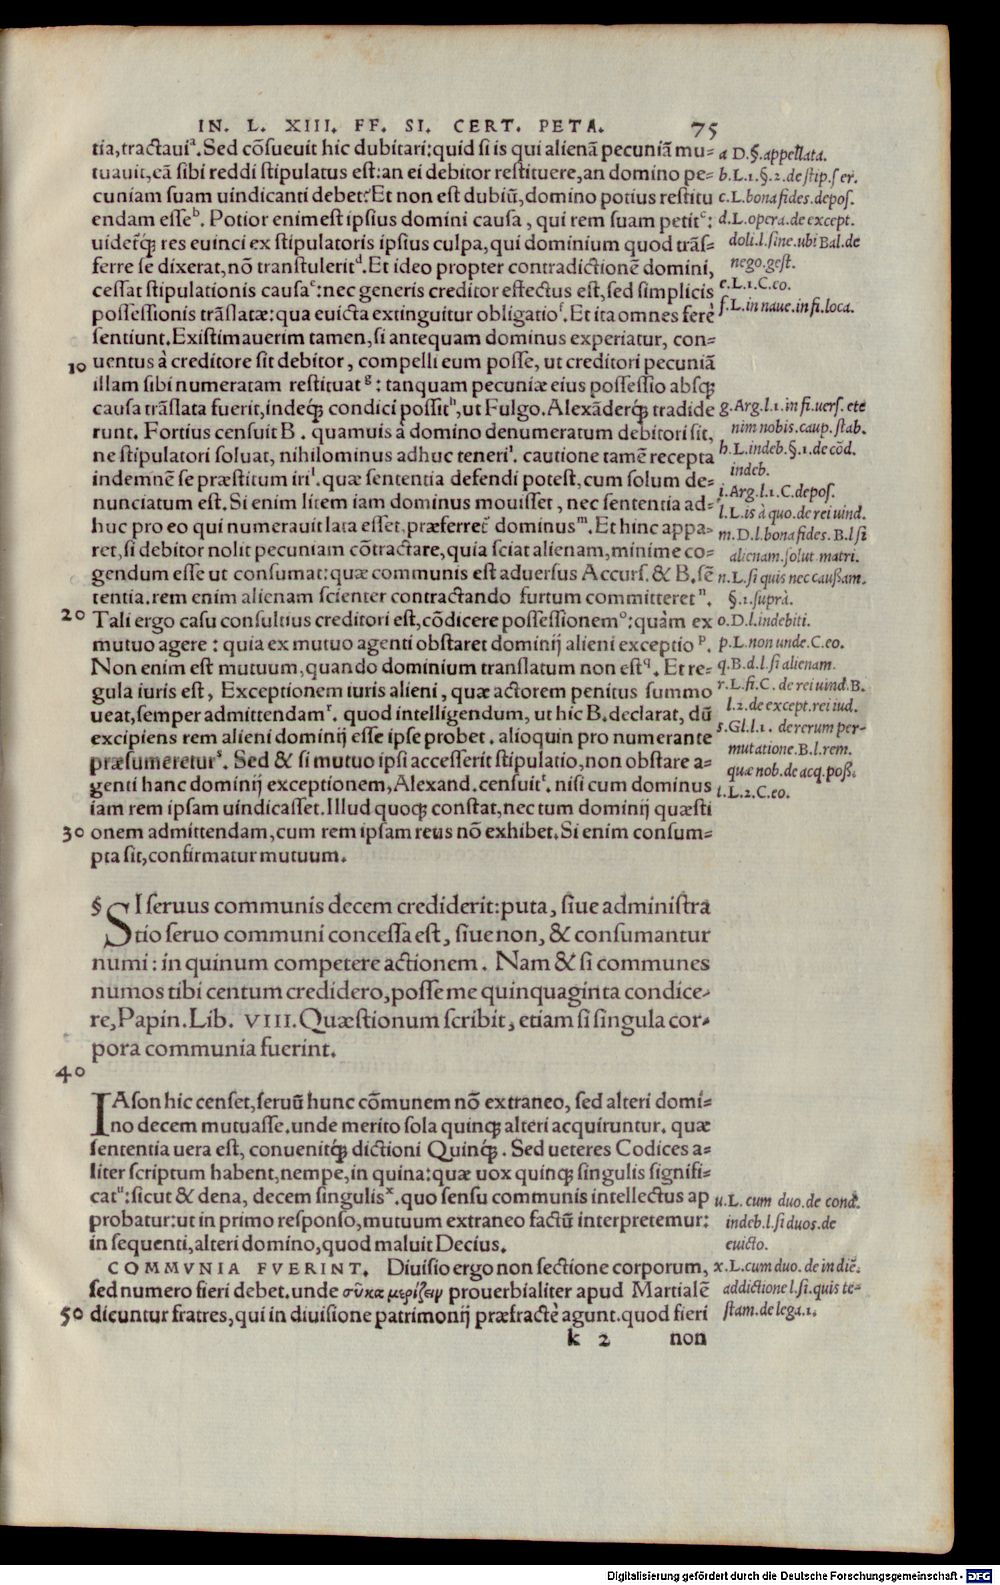 IN. L. XIII. FF. SI. CERT. PETA. 75
tia,tractauiᵃ.Sed cõsueuit hic dubitari:quid si is qui alienã pecuniã mu=
tuauit,eã sibi reddi stipulatus est:an ei debitor restituere,an domino pe=
cuniam suam uindicanti debet?Et non est dubiũ,domino potius restitu
endam esseᵇ. Potior enim est ipsius domini causa, qui rem suam petitᶜ:
uidet́q́; res euinci ex stipulatoris ipsius culpa,qui dominium quod trãs=
ferre se dixerat,nõ transtuleritᵈ.Et ideo propter contradictionẽ domini,
cessat stipulationis causaᵉ:nec generis creditor effectus est,sed simplicis
possessionis trãslatæ:qua euicta extinguitur obligatioᶠ.Et ita omnes ferè
sentiunt.Existimauerim tamen,si antequam dominus experiatur, con=
10 uentus à creditore sit debitor, compelli eum posse, ut creditori pecuniã
illam sibi numeratam restituatᵍ: tanquam pecuniæ eius possessio absq;
causa trãslata fuerit,indeq́; condici possitʰ,ut Fulgo.Alexãderq́; tradide
runt. Fortius censuit B. quamuis à domino denumeratum debitori sit,
ne stipulatori soluat, nihilominus adhuc teneriⁱ. cautione tamẽ recepta
indemnẽ se præstitum iriˡ. quæ sententia defendi potest,cum solum de=
nunciatum est.Si enim litem iam dominus mouisset, nec sententia ad=
huc pro eo qui numerauit lata esset,præferret́ dominusᵐ.Et hinc appa=
ret,si debitor nolit pecuniam cõtractare,quia sciat alienam,minime co=
gendum esse ut consumat:quæ communis est aduersus Accurs.& B.sẽ
tentia.rem enim alienam scienter contractando furtum committeretⁿ.
20 Tali ergo casu consultius creditori est,cõdicere possessionemᵒ:quàm ex
mutuo agere: quia ex mutuo agenti obstaret dominij alieni exceptioᵖ.
Non enim est mutuum,quando dominium translatum non est^q. Et re=
gula iuris est, Exceptionem iuris alieni, quæ actorem penitus summo
ueat,semper admittendamʳ. quod intelligendum, ut hic B.declarat, dũ
excipiens rem alieni dominij esse ipse probet. alioquin pro numerante
præsumereturˢ. Sed & si mutuo ipsi accesserit stipulatio,non obstare a=
genti hanc dominij exceptionem, Alexand.censuitᵗ. nisi cum dominus
iam rem ipsam uindicasset.Illud quoq; constat,nec tum dominij quæsti
30 onem admittendam,cum rem ipsam reus nõ exhibet.Si enim consum=
pta sit,confirmatur mutuum.
§ SI seruus communis decem crediderit:puta, siue administra
tio seruo communi concessa est, siue non, & consumantur
numi: in quinum competere actionem. Nam & si communes
numos tibi centum credidero,posse me quinquaginta condice=
re,Papin.Lib. VIII.Quæstionum scribit, etiam si singula cor=
pora communia fuerint.
40
IAson hic censet,seruũ hunc cõmunem nõ extraneo, sed alteri domi=
no decem mutuasse.unde merito sola quinq; alteri acquiruntur. quæ
sententia uera est, conuenitq́; dictioni Quinq́;. Sed ueteres Codices a=
liter scriptum habent,nempe,in quina:quæ uox quinq; singulis signifi=
catᵘ:sicut & dena, decem singulisˣ.quo sensu communis intellectus ap
probatur:ut in primo responso,mutuum extraneo factũ interpretemur:
in sequenti,alteri domino,quod maluit Decius.
COMMVNIA FVERINT. Diuisio ergo non sectione corporum,
sed numero fieri debet.unde σῦκα μερίζειν prouerbialiter apud Martialẽ
50 dicuntur fratres,qui in diuisione patrimonij præfractè agunt.quod fieri
k 2 non
a D.§.appellata.
b.L.1.§.2.de stip.ser.
c.L.bona fides.depos.
d.L.opera.de except.
doli.l.fine.ubi Bal.de
nego.gest.
e.L.1.C.eo.
f.L.in naue.in fi.loca.
g.Arg.l.1.in fi.uers.ete
nim nobis.caup.stab.
h.L.indeb.§.1.de cõd.
indeb.
i.Arg.l.1.C.depos.
l.L.is à quo.de rei uind.
m.D.l.bona fides.B.l si
alienam.solut.matri.
n.L.si quis nec caußam.
§.1.suprà.
o.D.l.indebiti.
p.L.non unde.C.eo.
q.B.d.l.si alienam.
r.L.fi.C. de rei uind.B.
l.2.de except.rei iud.
s.Gl.l.1. de rerum per-
mutatione.B.l.rem.
quæ nob.de acq.poß.
t.L.2.C.eo.
u.L.cum duo.de cond.
indeb.l.si duos.de
euicto.
x.L.cum duo.de in diẽ.
addictione l.si.quis te=
stam.de lega.1.
Digitalisierung gefördert durch die Deutsche Forschungsgemeinschaft - DFG